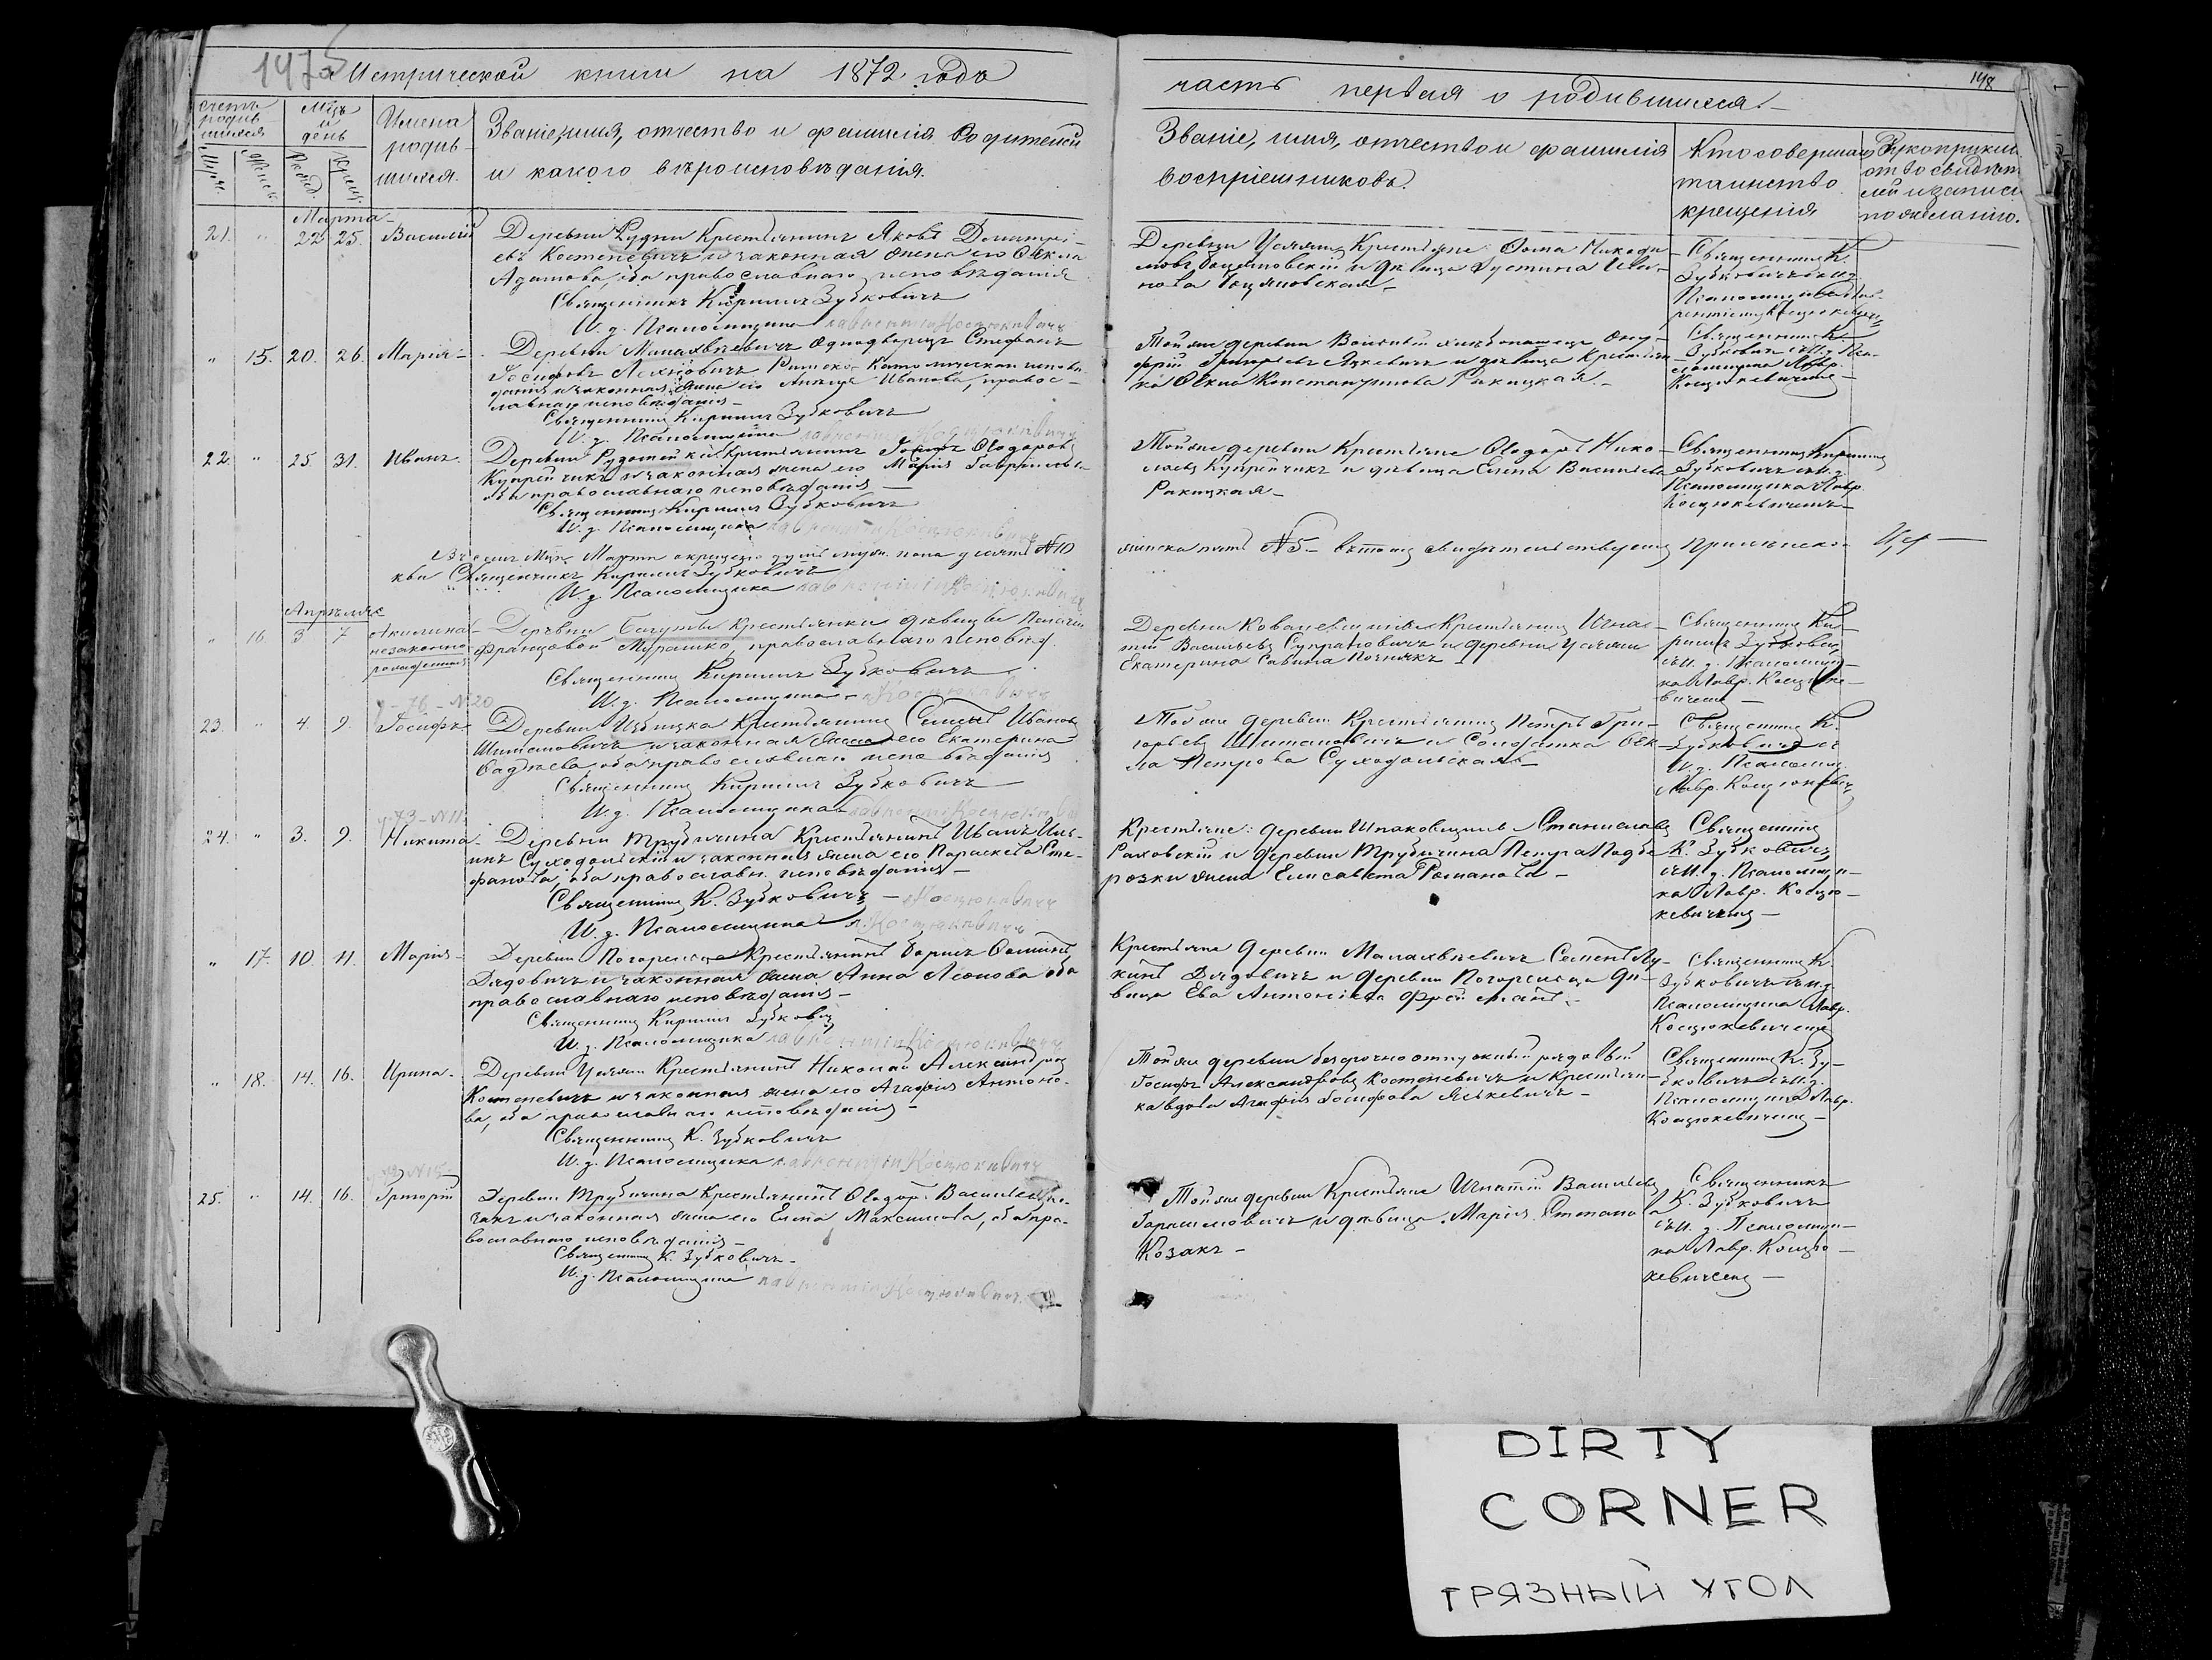 147
Метрической книги на 1872 годъ
часть первая о родившихся.
148
Счетъ родив-шихся
Мѣць и день
Имена родив-шихся.
Званіе, имя, отчество и фамилія Родителей
и какого вѣроисповѣданія.
Званіе, имя, отчество и фамилія
воспріемниковъ.
Кто совершалъ
таинство
крещенія
Рукоприклад
ство свидѣте
лей и записи
по желанію.
Марта
21. " 22 25. Василій
Деревни Рудни Крестьянинъ Яковъ Дмитрі-
евъ Костеневичъ и законная жена его Ѳекла
Адамова, оба православнаго исповѣданія
Священникъ Кириллъ Зубковичъ
И. д. Псаломщика Лаврентій Косцюкевичъ
Деревни Усялии Крестьяне: Ѳома Никоди
мовъ и дѣвица Іустина Ива-
нова
Священникъ К.
Зубковичъ съ и. д.
Псаломщика Лав-
рентіемъ Косцюкевичемъ
" 15. 20. 26. Марія
Деревни Малахвѣевичъ Однодворецъ Стефанъ
Іосифовъ Римско-Католическаго исповѣ
данія и законная жена его Иванова, правос-
лавнаго исповѣданія
Священникъ Кириллъ Зубковичъ
И. д. Псаломщика Лаврентій Косцюкевичъ
Той же деревни Ону-
фрій Григорьевъ Яцкевичъ и дѣвица Крестьян
ка Ѳекла Константинова Ракицкая
Священникъ К.
Зубковичъ съ И. д. Пса-
ломщика Лавр.
Косцюкевичемъ
22. " 25. 31. Иванъ.
Деревни Крестьянинъ Іосифъ Ѳедоровъ
Купрейчикъ и законная жена его Марія Гаврилова
оба православнаго исповѣданія
Священникъ Кириллъ Зубковичъ
И. д. Псаломщика Лаврентій Косцюкевичъ
Той же деревни Крестьяне Ѳедоръ Нико-
лаевъ Купрейчикъ и дѣвица Елена Васильева
Ракицкая
Священникъ Кириллъ
Зубковичъ съ И. д.
Псаломщика Лавр.
Косцюкевичемъ
Въ семъ Мцѣ Мартѣ окрещено душъ муж. пола десять №10
женска пять №5 въ томъ свидѣтельствуемъ Цер
кви Священникъ Кириллъ Зубковичъ
И. д. Псаломщика Лаврентій Косцюкевичъ
Апрѣль
" 16 3 7 Акилина
незаконно
рожденная
Деревни Багуты Крестьянки дѣвицы Пелагіи
Францовой Мурашко, православнаго исповѣд.
Священникъ Кириллъ Зубковичъ
И. д. Псаломщика Косцюкевичъ
Деревни Крестьянинъ Игна-
тій Васильевъ Супрановичъ и деревни Усялии
Екатерина Савина
Священникъ Ки-
риллъ Зубкович
съ И. д. Псаломщи-
ка Лавр. Косцюке-
вичемъ
№20
23. " 4. 9. Іосифъ
Деревни Избицка Крестьянинъ Семенъ Ивановъ
Шимановичъ и законная жена его Екатерина
оба православнаго исповѣданія
Священникъ Кириллъ Зубковичъ
И. д. Псаломщика Лаврентій Косцюкевичъ
Той же деревни Крестьянинъ Петръ Гри-
горьевъ Шимановичъ и Солдатка Ѳек-
ла Петрова Суходольская
Священникъ К.
Зубковичъ съ
И. д. Псаломщ.
Лавр. Косцюкевич
№11.
24. " 3. 9. Никита
Деревни Трубичина Крестьянинъ Иванъ Иль-
инъ Суходольскій и законная жена его Параскева Сте-
фанова, оба православн. исповѣданія
Священникъ К. Зубковичъ
И. д. Псаломщика Л. Косцюкевичъ
Крестьяне: деревни Станиславъ
Раковскій и деревни Трубичина Петра Подбе
розки жена Елисавета Романова
Священникъ
К. Зубковичъ
съ И. д. Псаломщи-
ка Лавр. Косцю-
кевичемъ
" 17. 10. 11. Марія
Деревни Погорельца Крестьянинъ Борисъ Ѳоминъ
Дядовичъ и законная жена Анна Леонова оба
православнаго исповѣданія
Священникъ Кириллъ Зубкович
И. д. Псаломщика Лаврентій Косцюкевичъ
Крестьяне деревни Малахвѣевичъ Семенъ Лу-
кинъ Дядовичъ и деревни Погорельца дѣ-
вица Ева Антонова
Священникъ К.
Зубковичъ съ и. д.
Псаломщика Лавр.
Косцюкевичемъ
" 18. 14. 16. Ирина
Деревни Усялии Крестьянинъ Николай Александровъ
Костеневичъ и законная жена его Агафія Антоно-
ва, оба православнаго исповѣданія
Священникъ К. Зубковичъ
И. д. Псаломщика Лаврентій Косцюкевичъ
Той же деревни безсрочноотпускный рядовый
Іосифъ Александровъ Костеневичъ и Крестьян-
ка вдова Агафія Іосифова Яцкевичъ
Священникъ К. Зу-
бковичъ съ И. д.
Псаломщика Лавр.
Косцюкевичемъ
25. " 14. 16. Григорій
Деревни Трубичина Крестьянинъ Ѳедоръ Васильевъ
и законная жена его Елена Максимова, оба пра-
вославнаго исповѣданія
Священникъ К. Зубковичъ
И. д. Псаломщика Лаврентій Косцюкевичъ
Той же деревни Крестьяне Игнатій Васильевъ
Герасимовичъ и дѣвица Марія Степанова
Козакъ
Священникъ
К. Зубковичъ
съ И. д. Псаломщи-
ка Лавр. Косцю-
кевичемъ
DIRTY
CORNER
ГРЯЗНЫЙ УГОЛ